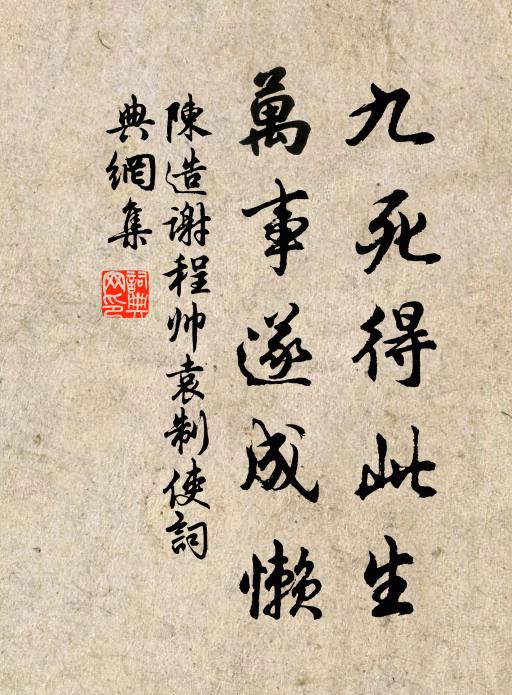 九死得此生
萬事遂成懒
陳造谢程帅袁制使詞
典網集
詞典
网印